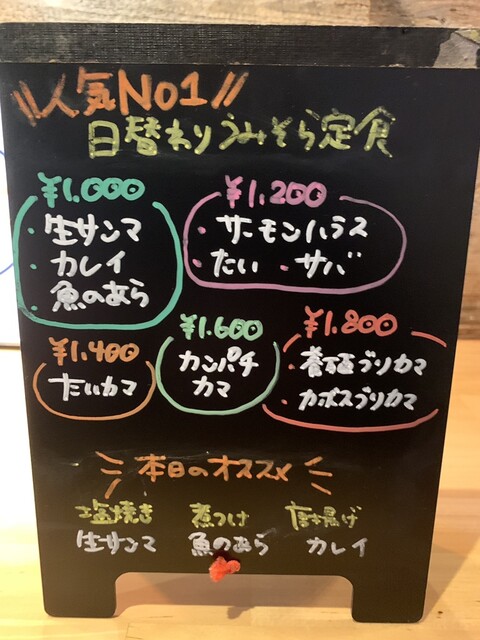 \\人気No1//
日替わりうみそら定食
¥1.000
・生サンマ
・カレイ
・魚のあら
¥1.200
・サーモンハラス
・たい ・サバ
¥1.400
たいカマ
¥1.600
カンパチ
カマ
¥1.800
・ブリカマ
・カボスブリカマ
本日のオススメ
塩焼き 煮つけ 唐揚げ
生サンマ 魚のあら カレイ